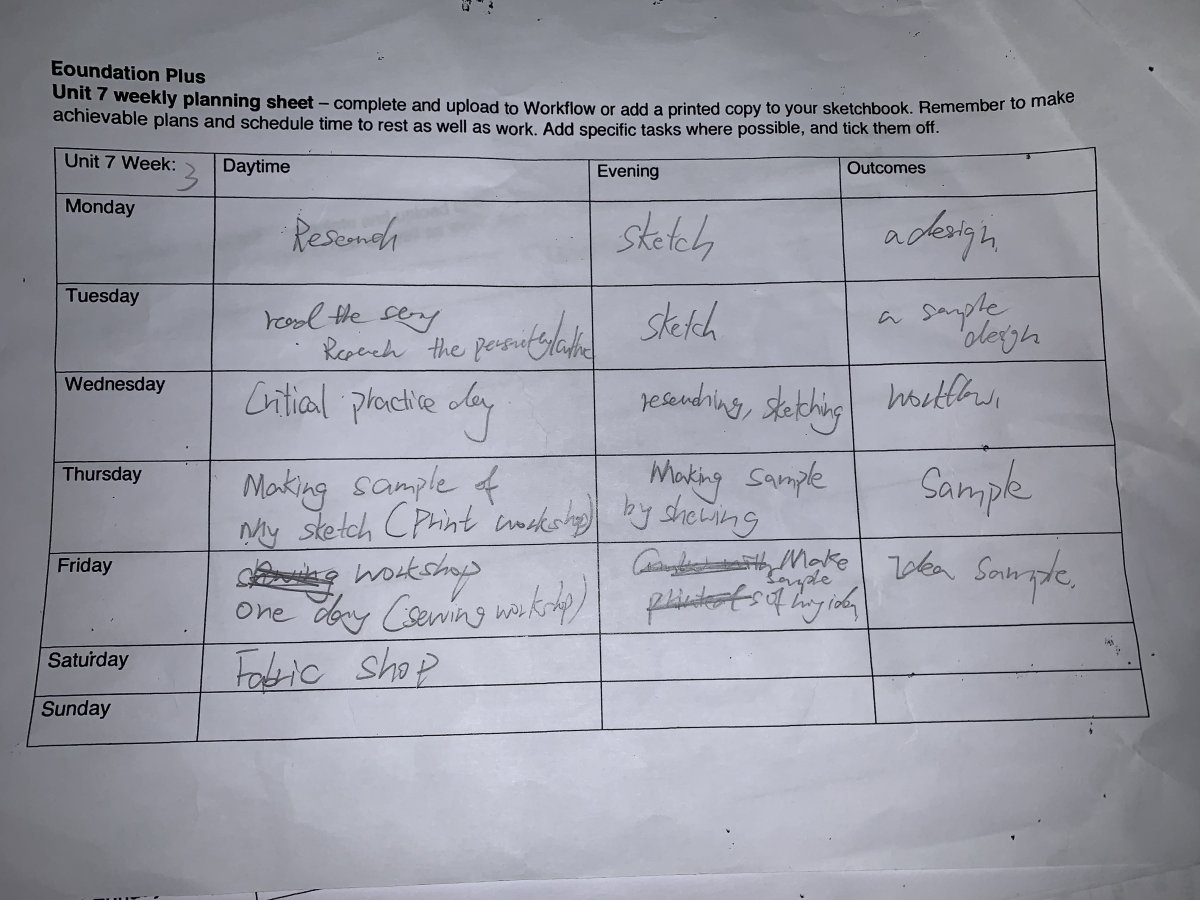 Eoundation Plus
Unit 7 weekly planning sheet – complete and upload to Workflow or add a printed copy to your sketchbook. Remember to make
achievable plans and schedule time to rest as well as work. Add specific tasks where possible, and tick them off.
Unit 7 Week: 3 Daytime Evening Outcomes
Monday Research sketch a design
Tuesday the sketch a sample
the design
Wednesday Critical practice day researching, sketching workflow
Thursday Making sample of Making sample Sample
My sketch (Print workshop) by shewing
Friday workshop Make Idea Sample.
sample
one day (sewing workshop) of my idea
Saturday Fabric shop
Sunday